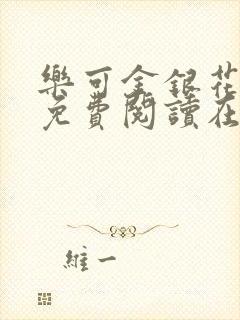 樂可金銀花
免費閱讀在
維一